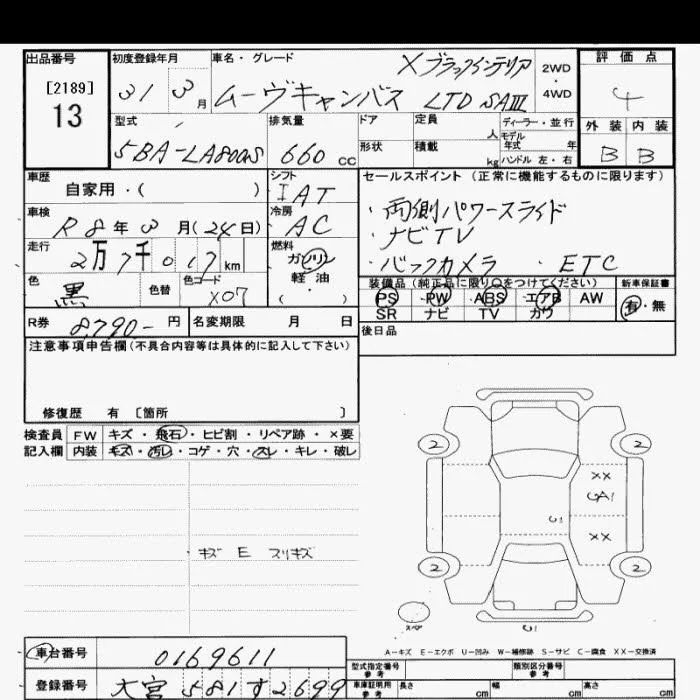 出品番号 初度登録年月 車名・グレード 評価点
[2189]
13
31 3月
Xブラックインテリア
ムーヴキャンバス LTD SAⅢ
2WD・4WD
4
型式 排気量 ドア 定員 人 ディーラー・並行 外装 内装
モデル年式 年
5BA-LA800S 660cc 形状 積載 kg ハンドル 左・右 B B
車歴 シフト セールスポイント(正常に機能するものに限ります)
自家用・( ) IAT
・両側パワースライド
車検 冷房
R8年3月(24日) AC
・ナビTV
走行 燃料
2万7千017km ガソリン
・バックカメラ ・ETC
色 色替 色コード 軽油
黒 X07 (・)
装備品(純正品に限り○をつけてください) 新車保証書
PS PW ABS エアB AW 有・無
SR ナビ TV カワ
R券 8790-円 名変期限 月 日
後日品
注意事項申告欄(不具合内容等は具体的に記入して下さい)
修復歴 有 〔箇所 〕
検査員 FW キズ・飛石・ヒビ割・リペア跡・×要
記入欄 内装 キズ・汚レ・コゲ・穴・スレ・キレ・破レ
・キズ E スリキズ
2 2
××
UA1
U1 ××
2 2
スペア U1
A-キズ E-エクボ U-凹み W-補修跡 S-サビ C-腐食 XX-交換済
車台番号 0169611
登録番号 大宮 581 す2699
型式指定番号 参考 類別区分番号 参考
車庫証明用 参考 長さ cm 幅 cm 高さ cm